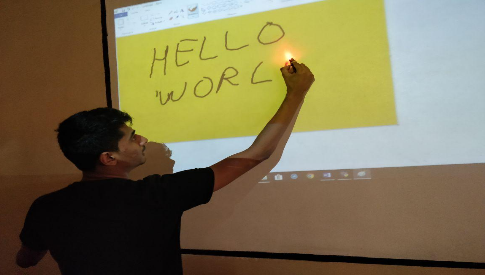 HELLO
WORL